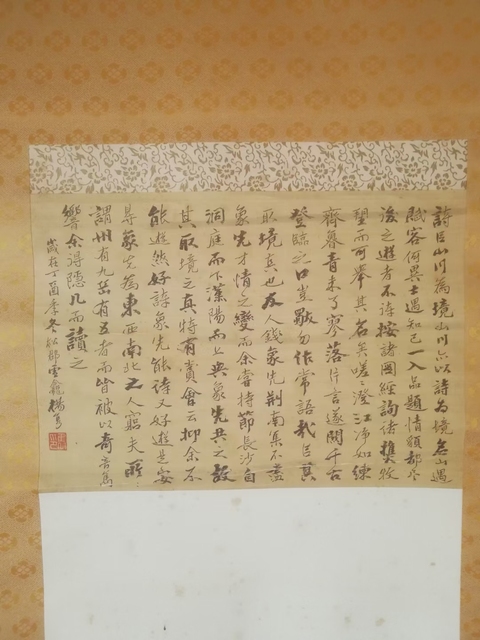 詩以山川為境山川亦以詩為境名山遇
賦客何異士遇知己一入品題情貌都盡
後之遊者不待按諸圖經詢諸樵牧
望而可舉其名矣嗟〻澄江淨如練
齊魯青未了寥落片言遂關千古
登臨之口豈獨勿作常語哉以其
取境真也友人錢象先荊南集不盡
象先才情之變而余嘗持節長沙自
洞庭而下漢陽而上與象先共之故
其取境之真特有賞會云抑余不
能遊然好詩象先能詩又好遊是安
得象先為東西南北之人窮夫所
謂州有九岳有五者而皆被以奇音為
響余得隱几而讀之
歲在丁酉季冬松邨